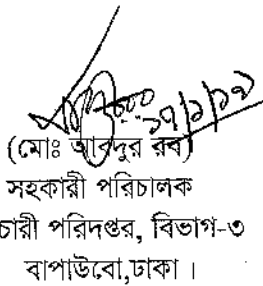 ১৭/১/১৯
(মোঃ আবদুর রব)
সহকারী পরিচালক
চারী পরিদপ্তর, বিভাগ-৩
বাপাউবো,ঢাকা ।